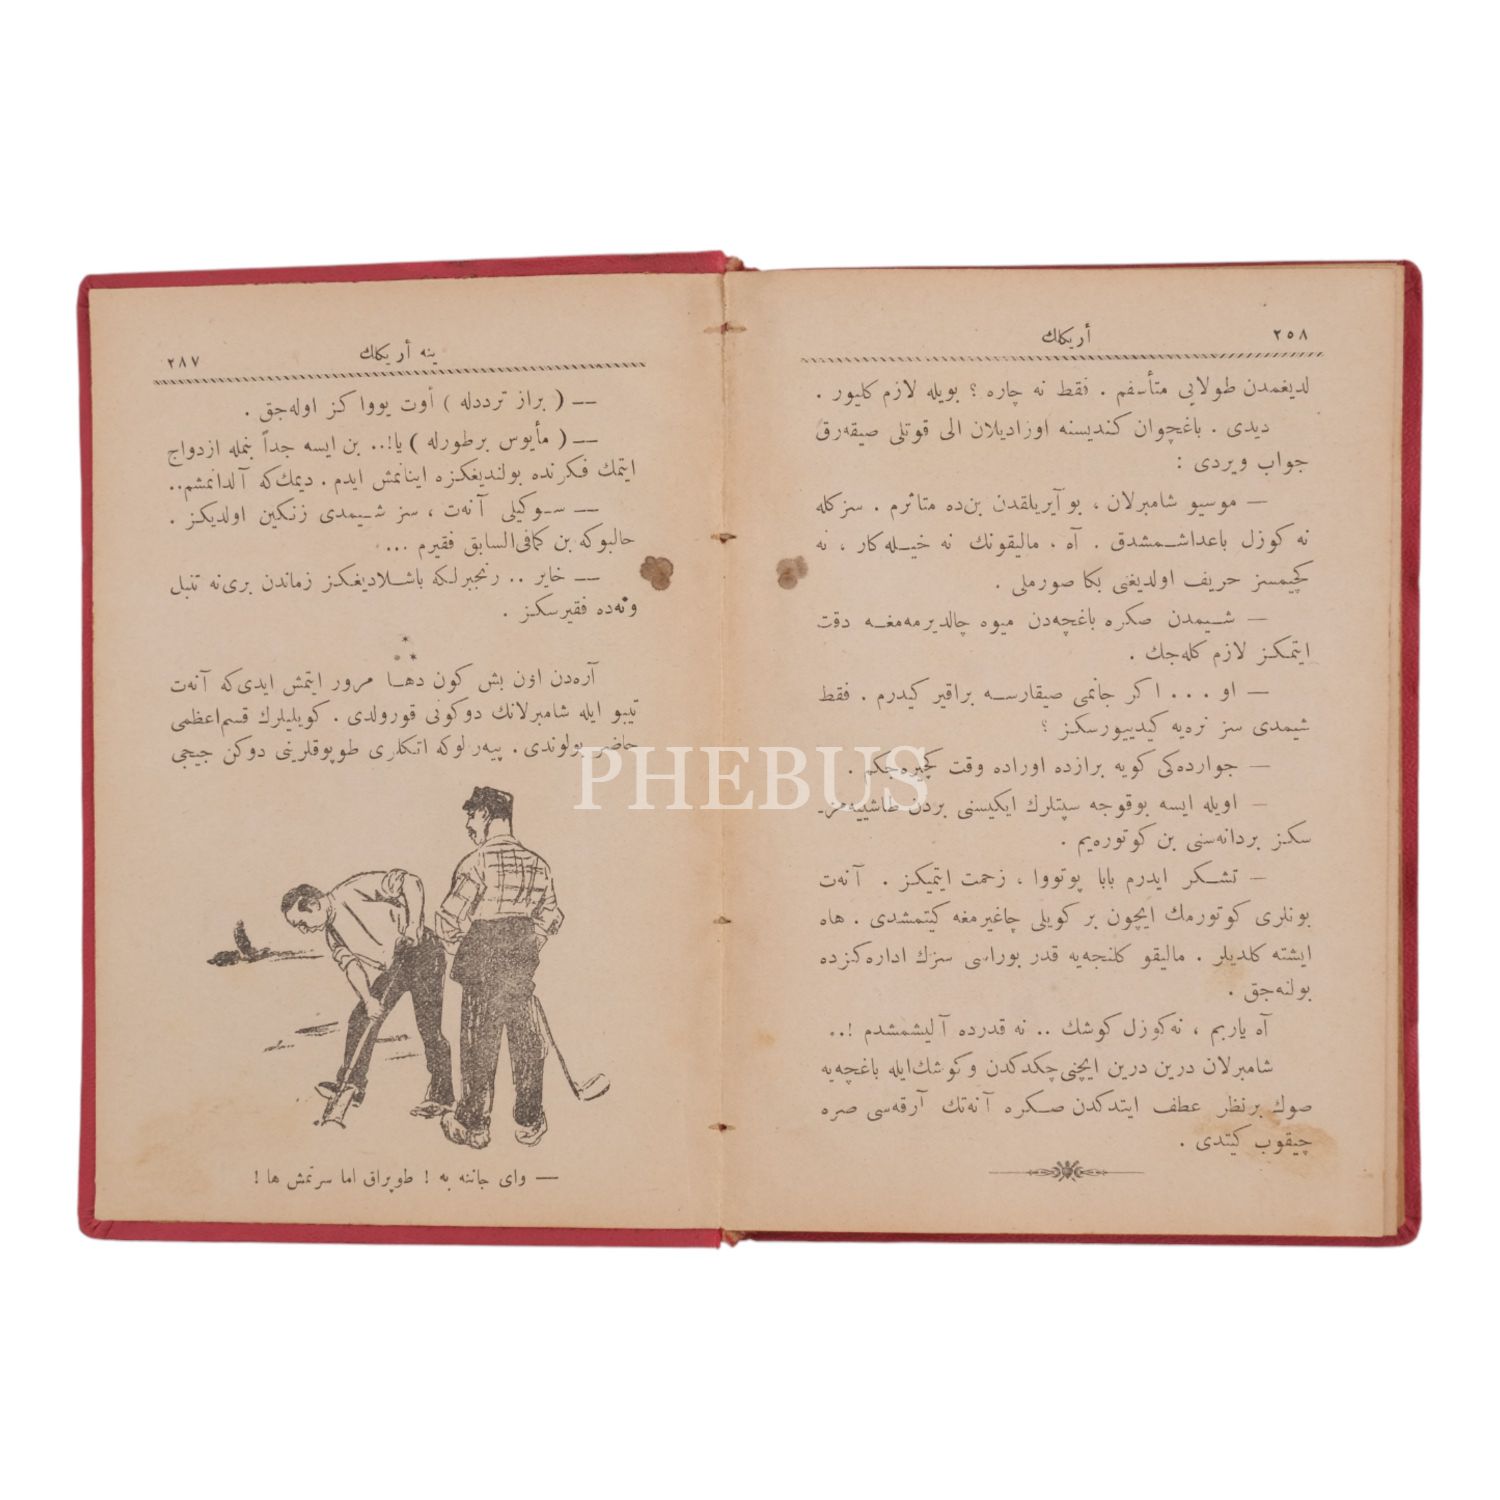 ٢٥٨
أريكلك
لديغمدن طولايی متأسفم . فقط نه چاره ؟ بويله لازم كليور .
ديدی . باغچوان كنديسنه اوزاديلان الی قوتلی صيقه‌رق
جواب ويردی :
— موسيو شامبرلان ، بو آيريلقدن بن‌ده متاثرم . سزكله
نه كوزل باغداشمشدق . آه . ماليقونك نه خيله‌كار ، نه
كچيمسز حريف اولديغنی بكا صورملی .
— شيمدن صكره باغچه‌دن ميوه چالديرمه‌مغه دقت
ايتمكز لازم كله‌جك .
— او ... اكر جانمی صيقارسه براقير كيدرم . فقط
شيمدی سز نره‌يه كيدييورسكز ؟
— جوارده‌كی كويه برازده اوراده وقت كچيره‌جكم .
— اويله ايسه بوقوجه سپتلرك ايكيسنی بردن طاشييه‌مز-
سكز بردانه‌سنی بن كوتوره‌يم .
— تشكر ايدرم بابا پوتووا ، زحمت ايتميكز . آنه‌ت
بونلری كوتورمك ايچون بر كويلی چاغيرمغه كيتمشدی . هاه
ايشته كلديلر . ماليقو كلنجه‌يه قدر بوراسی سزك اداره‌كزده
بولنه‌جق .
آه ياربم ، نه‌كوزل كوشك .. نه قدرده آليشمشدم !..
شامبرلان درين درين ايچنی چكدكدن و كوشك‌ايله باغچه‌يه
صوك برنظر عطف ايتدكدن صكره آنه‌تك آرقه‌سی صره
چيقوب كيتدی .
ينه أريكلك
٢٨٧
— ( براز ترددله ) أوت يووا كز اوله‌جق .
— ( مأيوس برطورله ) يا!.. بن ايسه جداً بنمله ازدواج
ايتمك فكرنده بولنديغكزه اينانمش ايدم . ديمك‌كه آلدانمشم..
— سوكيلی آنه‌ت ، سز شيمدی زنكين اولديكز .
حالبوكه بن كمافی‌السابق فقيرم ...
— خاير .. رنجبرلكه باشلاديغكز زماندن بری نه تنبل
ونه‌ده فقيرسكز .
* * *
آره‌دن اون بش كون دها مرور ايتمش ايدی‌كه آنه‌ت
تيبو ايله شامبرلانك دوكونی قورولدی . كويليلرك قسم‌اعظمی
حاضر بولوندی . پيه‌ر لوكه اتكلری طوپوقلرينی دوكن جيجی
— وای جاننه يه ! طوپراق اما سرتمش ها !
PHEBUS